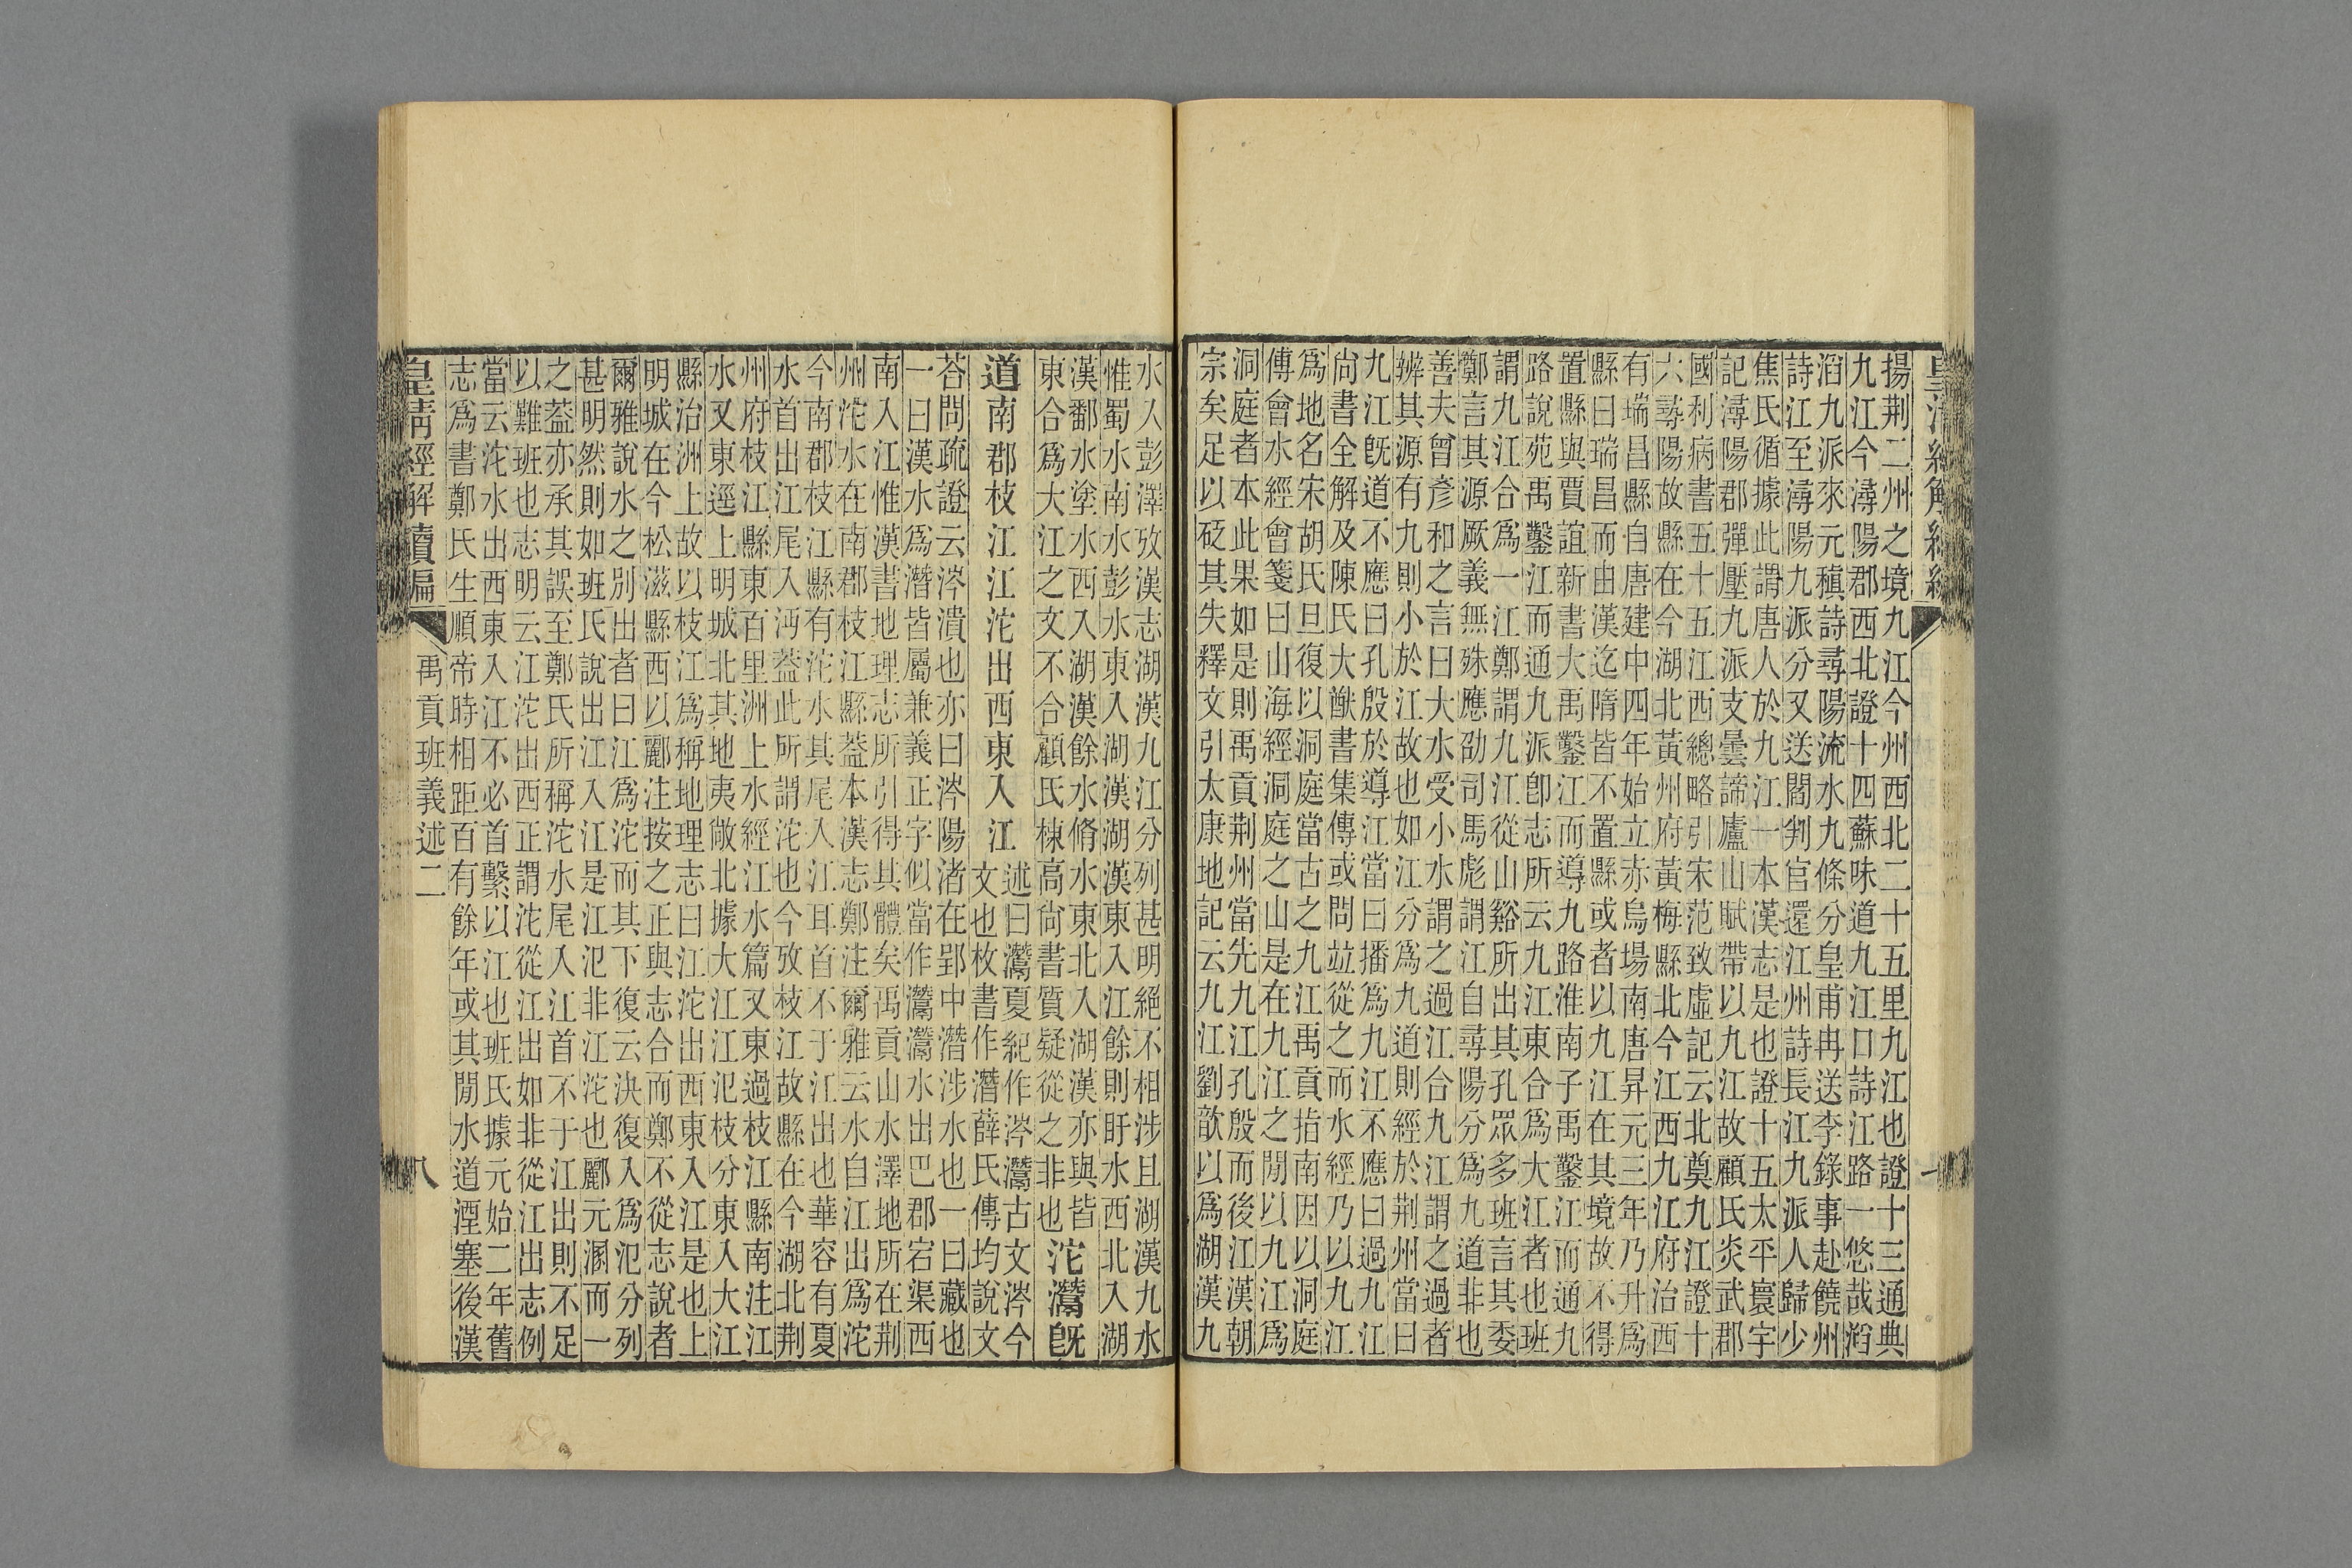 揚荊二州之境九江今州西北二十五里九江也證十三通典
九江今潯陽郡西北證十四蘇味道九江口詩江路一悠哉滔
滔九派來元稹詩尋陽流水九條分皇甫冉送李錄事赴饒州
詩江至潯陽九派分又送閻判官還江州詩長江九派人歸少
焦氏循據此謂唐人於九江一本漢志是也證十五太平寰宇
記潯陽郡彈壓九派支曇諦廬山賦帶以九江故顧氏炎武郡
國利病書五十五江西總略引宋范致虛記云北奠九江證十
六尋陽故縣在今湖北黃州府黃梅縣北今江西九江府治西
有瑞昌縣自唐建中四年始立赤烏場南唐昇元三年乃升爲
縣曰瑞昌而由漢迄隋皆不置縣或者以九江在其境故不得
置縣與賈誼新書大禹鑿江而導九路淮南子禹鑿江而通九
路說苑禹鑿江而通九派卽志所云九江東合爲大江者也班
謂九江合爲一江鄭謂九江從山谿所出其孔眾多班言其委
鄭言其源厥義無殊應劭司馬彪謂江自尋陽分爲九道非也
善夫曾彥和之言曰大水受小水謂之過江合九江謂之過者
辨其源有九則小於江故也如江分爲九道則經於荊州當曰
九江旣道不應曰孔殷於導江當曰播爲九江不應曰過九江
尙書全解及陳氏大猷書集傳或問竝從之而水經乃以九江
爲地名宋胡氏旦復以洞庭當古之九江禹貢指南因以洞庭
傅會水經會箋曰山海經洞庭之山是在九江之閒以九江爲
洞庭者本此果如是則禹貢荊州當先九江孔殷而後江漢朝
宗矣足以砭其失釋文引太康地記云九江劉歆以爲湖漢九
水入彭澤攷漢志湖漢九江分列甚明絕不相涉且湖漢九水
惟蜀水南水彭水東入湖漢湖漢東入江餘則盱水西北入湖
漢鄱水塗水西入湖漢餘水脩水東北入湖漢亦與皆
東合爲大江之文不合顧氏棟高尙書質疑從之非也
沱灊旣
道南郡枝江江沱出西東入江
述曰灊夏紀作涔灊古文涔今
文也枚書作潛薛氏傳均說文
荅問疏證云涔潰也亦曰涔陽渚在郢中潛涉水也一曰藏也
一曰漢水爲潛皆屬兼義正字似當作灊灊水出巴郡宕渠西
南入江惟漢書地理志所引得其體矣禹貢山水澤地所在荊
州沱水在南郡枝江縣葢本漢志鄭注爾雅云水自江出爲沱
今南郡枝江縣有沱水其尾入江耳首不于江出也華容有夏
水首出江尾入沔葢此所謂沱也今攷枝江故縣在今湖北荊
州府枝江縣東百里洲上水經江水篇又東過枝江縣南注江
水又東逕上明城北其地夷敞北據大江江氾枝分東入大江
縣治洲上故以枝江爲稱地理志曰江沱出西東入江是也上
明城在今松滋縣西以酈注按之正與志合而鄭不從志說者
爾雅說水之別出者曰江爲沱而其下復云決復入爲氾分列
甚明然則如班氏說出江入江是江氾非江沱也酈元溷而一
之葢亦承其誤至鄭氏所稱沱水尾入江首不于江出則不足
以難班也志明云江沱出西正謂沱從江出如非從江出志例
當云沱水出西東入江不必首繫以江也班氏據元始二年舊
志爲書鄭氏生順帝時相距百有餘年或其閒水道湮塞後漢
皇清經解續編
禹貢班義述二
八